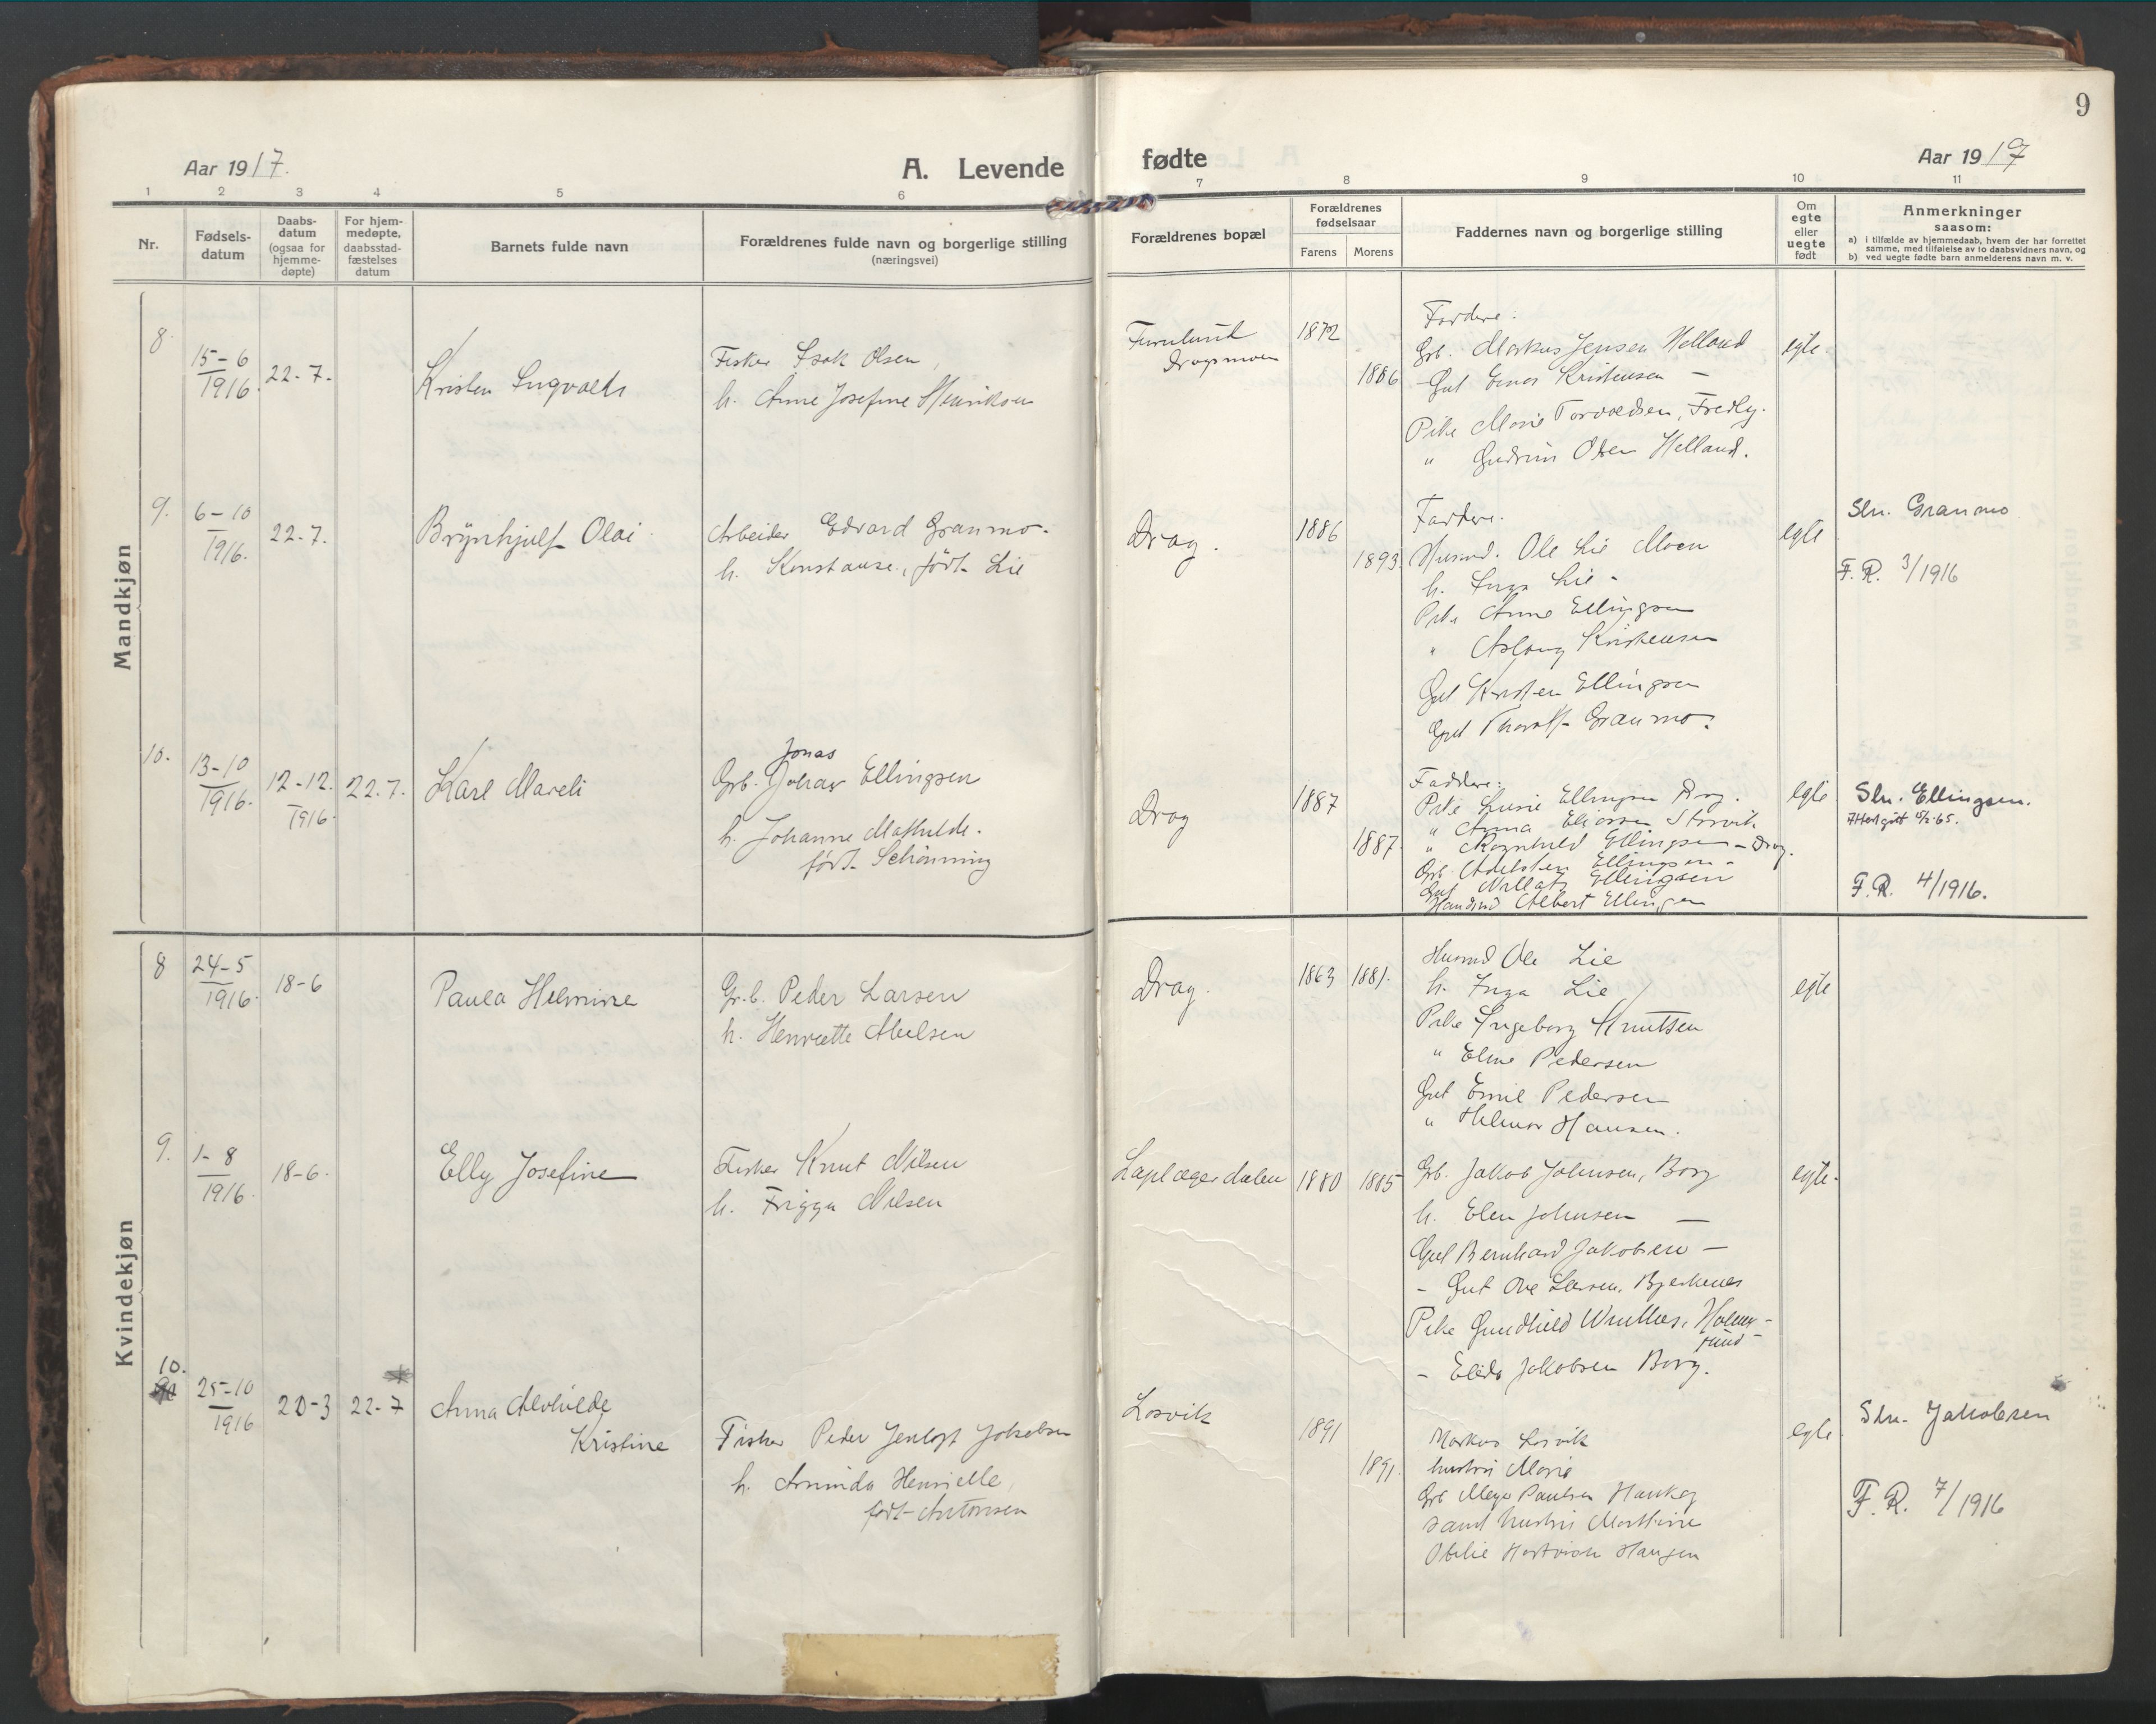 9
Aar 1917.
A. Levende
fødte
Aar 1917
1 2 3 4 5 6 7 8 9 10 11
Nr.
Fødsels-
datum
Daabs-
datum
(ogsaa for
hjemme-
døpte)
For hjem-
medøpte,
daabsstad-
fæstelses
datum
Barnets fulde navn
Forældrenes fulde navn og borgerlige stilling
(næringsvei)
Forældrenes bopæl
Forældrenes
fødselsaar
Farens Morens
Faddernes navn og borgerlige stilling
Om
egte
eller
uegte
født
Anmerkninger
saasom:
a) i tilfælde av hjemmedaab, hvem der har forrettet
samme, med tilføielse av to daabsvidners navn, og
b) ved uegte fødte barn anmelderens navn m. v.
Mandkjøn
8.
15-6
1916.
22-7.
Kristen Ingvald
Fisker Isak Olsen,
h. Anne Josefine Henriksen
Furulund
Dragsmoen
1872
1886
Faddere:
Grb. Markus Jensen Helland
Gut Einar Kristensen —
Pike Marie Torvaldsen, Fredly.
" Gudrun Olsen Helland.
egte
9.
6-10
1916.
22-7.
Brynhjulf Olai
Arbeider Edvard Granmo.
h. Konstanse, født Lie
Drag.
1886
1893.
Faddere.
Husmd. Ole Lie Moen
h. Inga Lie -
Pike Anne Ellingsen
" Aslaug Kristensen
Gut Kristen Ellingsen
Gut Thoralf Granmo.
egte
Sln. Granmo
F.R. 3/1916
10.
13-10
1916.
12-12.
1916.
22.7.
Karl Mareli
Jonas
Grb. Johan Ellingsen
h. Johanne Mathilde.
født Schønning
Drag
1887
1887.
Faddere:
Pike Ellingsen Drag.
" Anna Eliassen Storvik
" Ragnhild Ellingsen - Drag.
Grb. Adelsten Ellingsen -
Gut Ellingsen
Albert Ellingsen
egte
Sln. Ellingsen.
F.R. 4/1916.
Kvindekjøn
8
24-5
1916.
18-6
Paula Helmine
Gr.b. Peder Larsen
h. Henriette Abelsen
Drag.
1863 1881.
Husmd Ole Lie
h. Inga Lie
Pike Ingeborg Knutsen
" Eline Pedersen
Gut Emil Pedersen
" Helmer Hansen.
egte
9.
1-8
1916.
18-6.
Elly Josefine
Fisker Knut Nilsen
h. Frigga Nilsen
Laplægerdalen
1880 1885
Grb. Jakob Johnsen, Borg
h. Elen Johnsen —
Gut Bernhard Jakobsen —
- Gut Ove Larsen, Bjerkenes
Pike Gundhild
- Elida Jakobsen Borg.
egte.
10.
25-10
1916
20-3
22-7
Anna Alvhilde
Kristine
Fisker Peder Jenloft Jakobsen
h. Arminda Henrielle,
født Antonsen
Losvik
1891
1891.
Markus Losvik
hustru Marie
Grb Meyer Paulsen
samt hustru Marthine
Otelie Hartvich Hansen
egte
Sln. Jakobsen
F.R. 7/1916